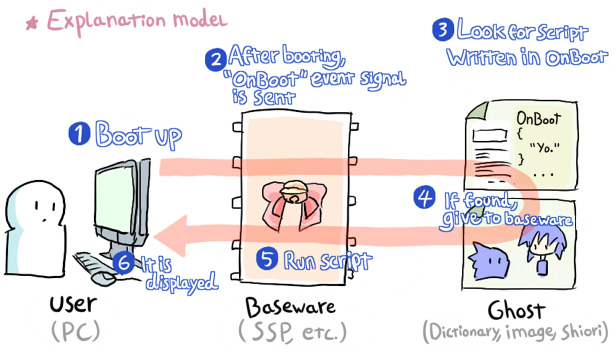 * Explanation model
1 Boot up
2 After booting,
"OnBoot" event signal
is sent
3 Look for Script
Written in OnBoot
OnBoot
{
"Yo."
}
....
4 If found,
give to baseware
5 Run script
6 It is
displayed
User
(PC)
Baseware
(SSP, etc.)
Ghost
(Dictionary, image, Shiori)